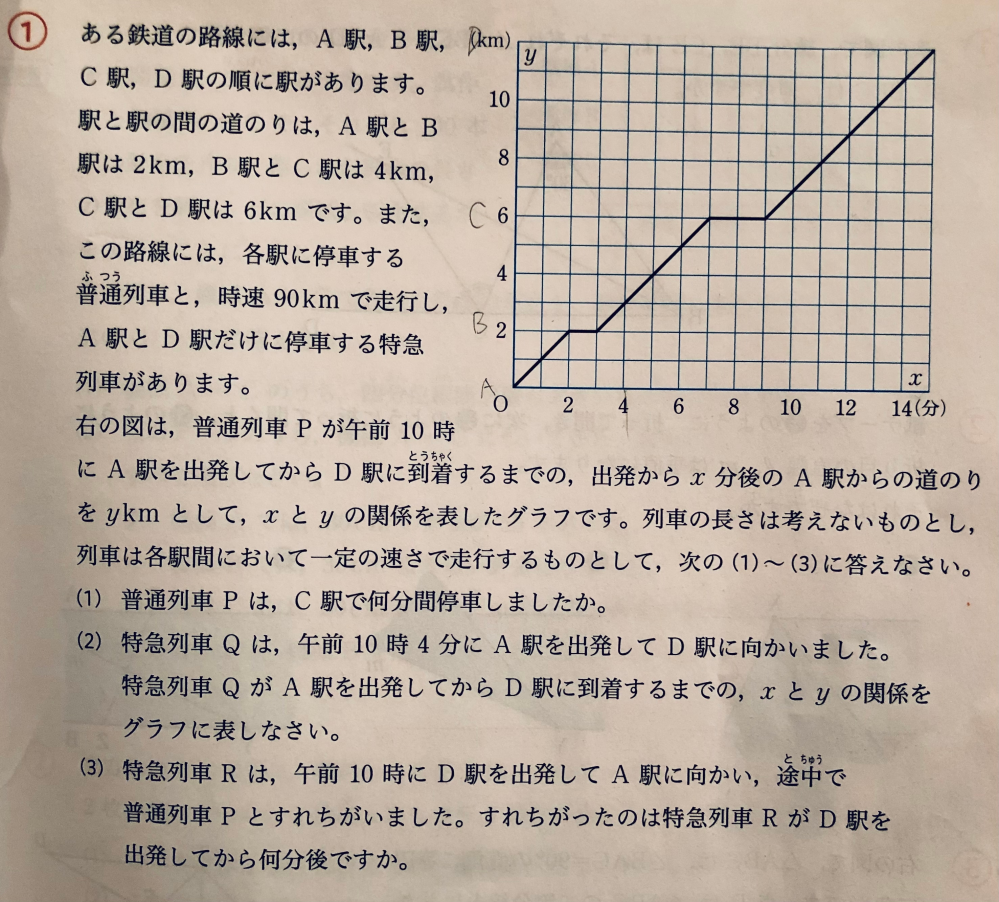 1
ある鉄道の路線には，A 駅，B 駅，
C 駅，D 駅の順に駅があります。
駅と駅の間の道のりは，A 駅と B
駅は 2km，B 駅と C 駅は 4km，
C 駅と D 駅は 6km です。また，
この路線には，各駅に停車する
ふ つう
普通列車と，時速 90km で走行し，
A 駅と D 駅だけに停車する特急
列車があります。
D
(km)
y
10
8
C 6
4
B 2
A
O 2 4 6 8 10 12 14(分)
x
右の図は，普通列車 P が午前 10 時
とうちゃく
に A 駅を出発してから D 駅に到着するまでの，出発から x 分後の A 駅からの道のり
を ykm として，x と y の関係を表したグラフです。列車の長さは考えないものとし，
列車は各駅間において一定の速さで走行するものとして，次の (1)～(3)に答えなさい。
(1) 普通列車 P は，C 駅で何分間停車しましたか。
(2) 特急列車 Q は，午前 10 時 4 分に A 駅を出発して D 駅に向かいました。
特急列車 Q が A 駅を出発してから D 駅に到着するまでの，x と y の関係を
グラフに表しなさい。
と ちゅう
(3) 特急列車 R は，午前 10 時に D 駅を出発して A 駅に向かい，途中で
普通列車 P とすれちがいました。すれちがったのは特急列車 R が D 駅を
出発してから何分後ですか。